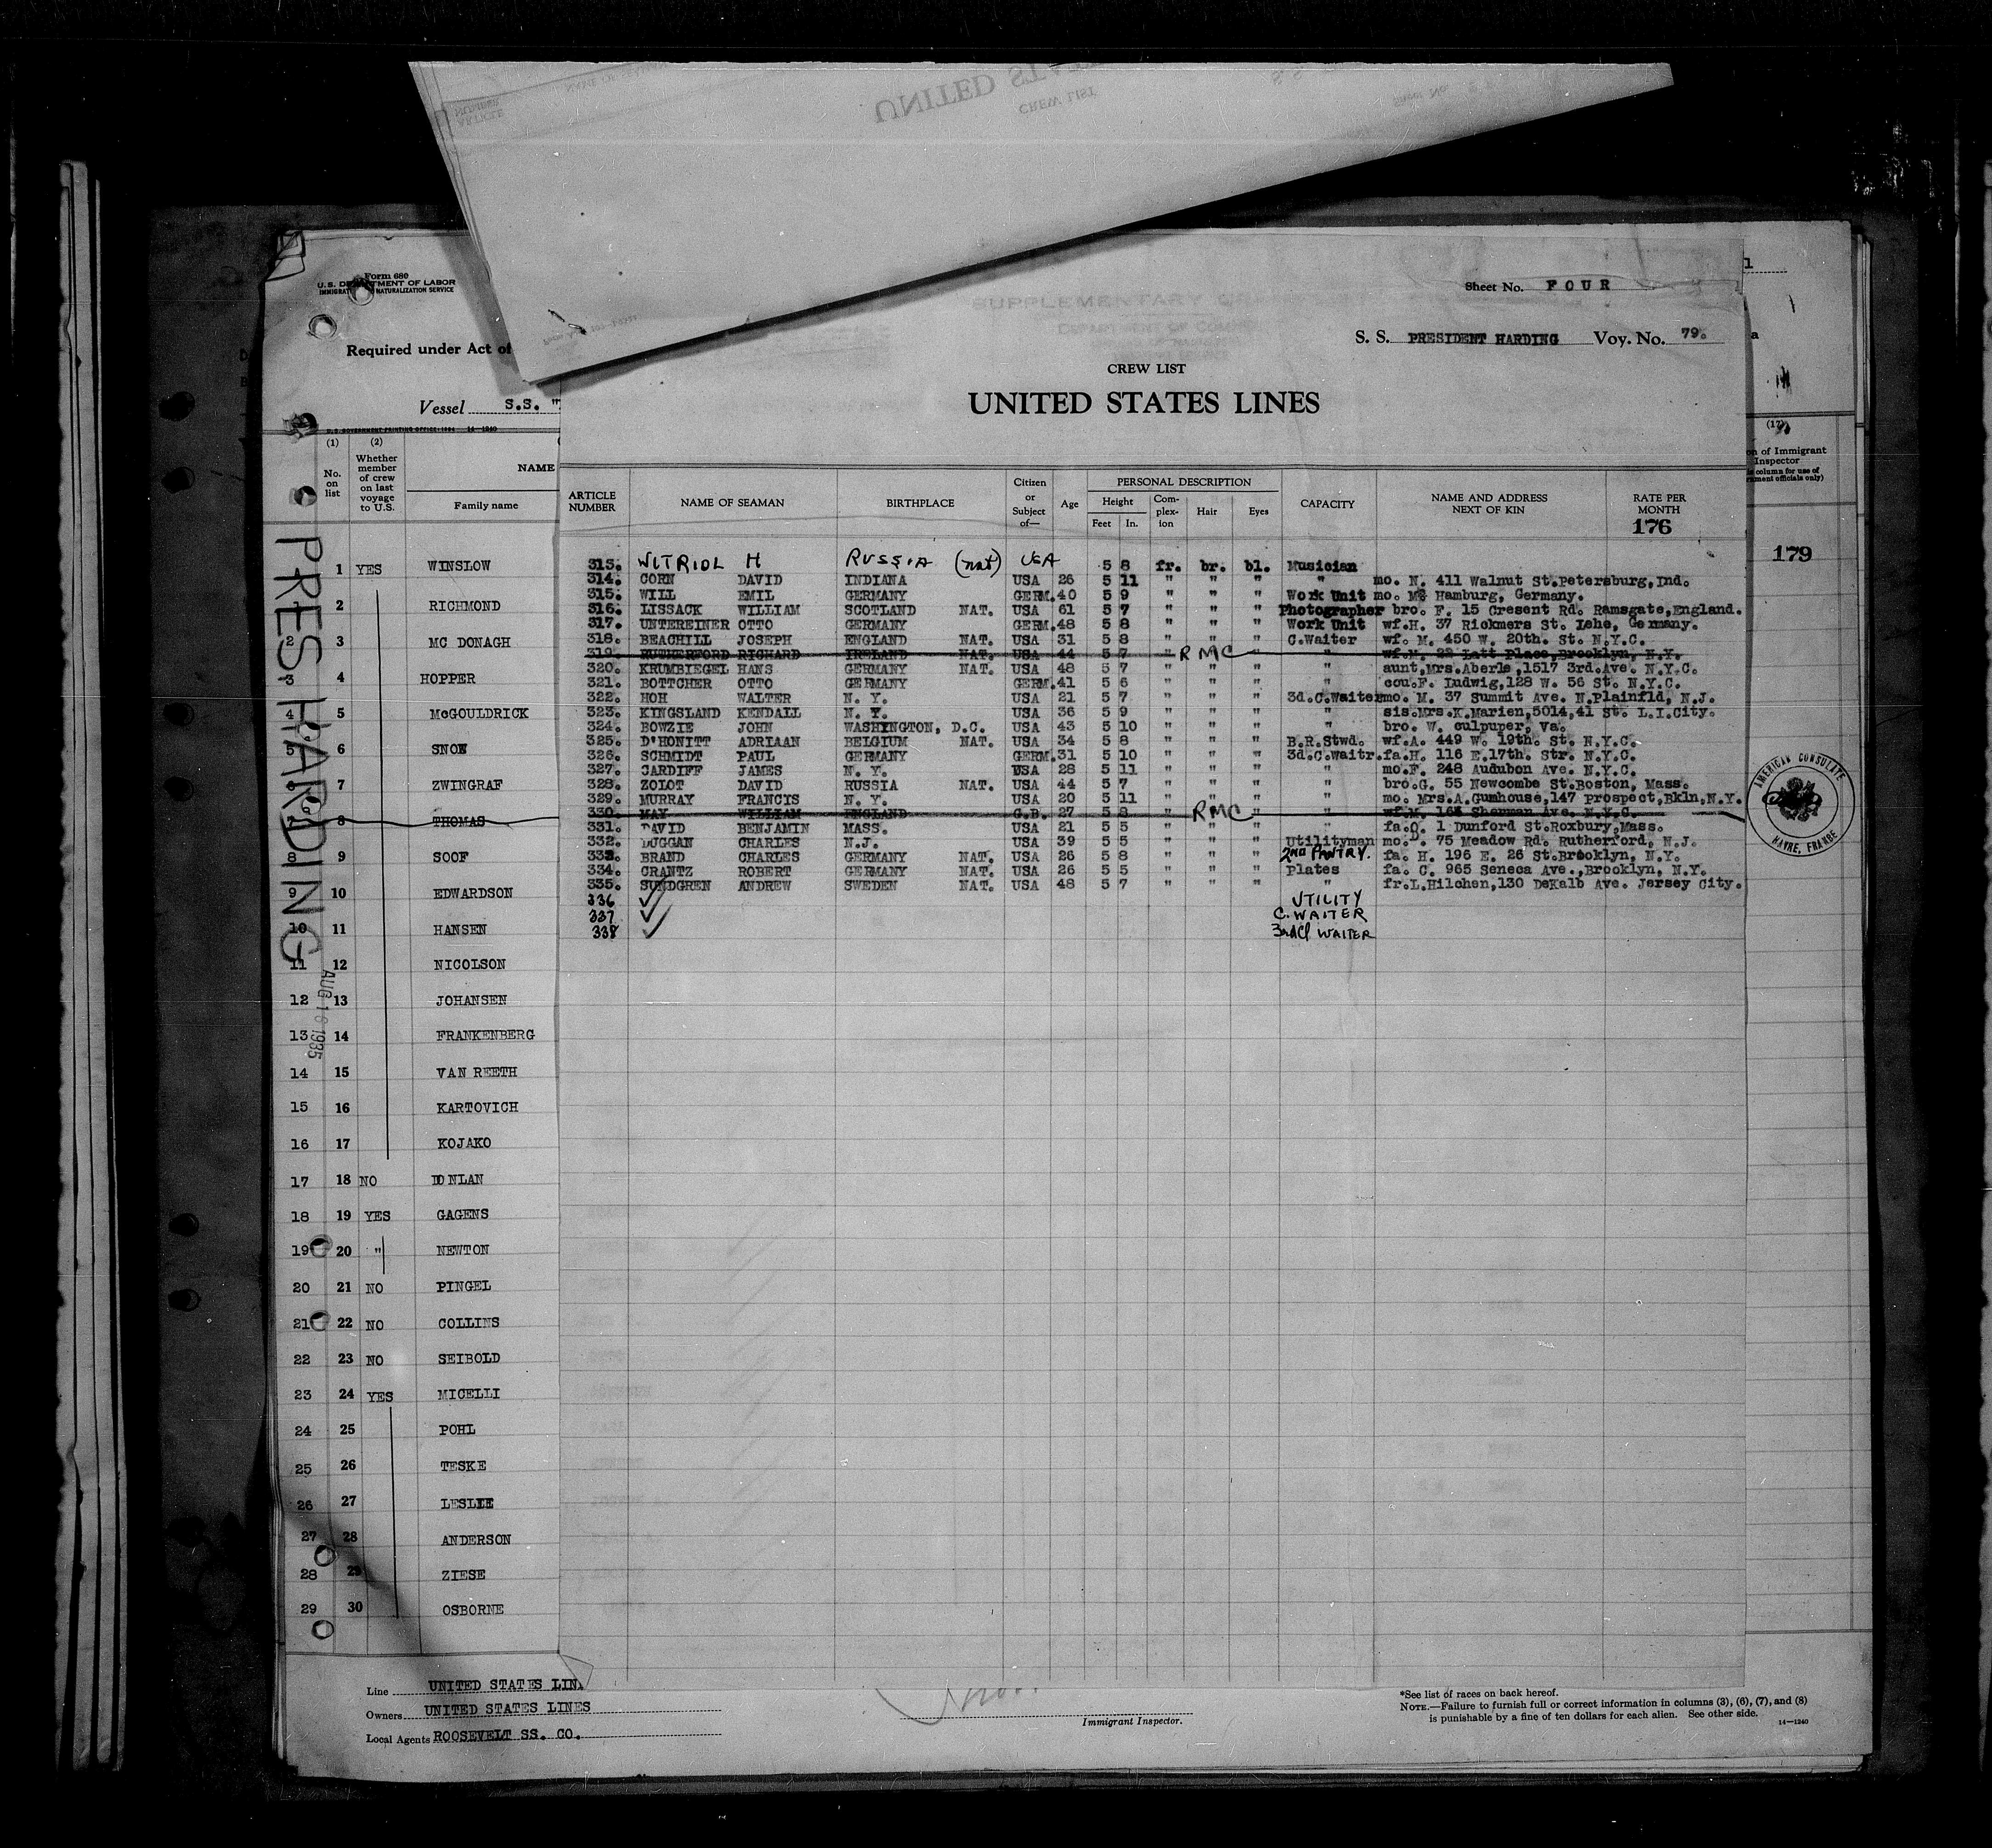 UNITED STATES
CREW LIST
Form 680
U.S. DEPARTMENT OF LABOR
NATURALIZATION SERVICE
Required under Act of
Vessel S.S. "
Sheet No. FOUR
S. S. PRESIDENT HARDING Voy. No. 79.
CREW LIST
UNITED STATES LINES
(1) (2)
No. on list Whether member of crew on last voyage to U.S. NAME
Family name
ARTICLE NUMBER NAME OF SEAMAN BIRTHPLACE Citizen or Subject of— Age PERSONAL DESCRIPTION CAPACITY NAME AND ADDRESS NEXT OF KIN RATE PER MONTH
Height Complexion Hair Eyes
Feet In.
176
179
313. WITRIOL H RUSSIA (nat) USA 5 8 fr. br. bl. Musician
314. CORN DAVID INDIANA USA 26 5 11 " " " " mo. N. 411 Walnut St.Petersburg,Ind.
315. WILL EMIL GERMANY GERM. 40 5 9 " " " Work Unit mo. Hamburg, Germany.
316. LISSACK WILLIAM SCOTLAND NAT. USA 61 5 7 " " " Photographer bro. F. 15 Cresent Rd. Ramsgate,England.
317. UNTEREINER OTTO GERMANY GERM. 48 5 8 " " " Work Unit wf.H. 37 Rickmers St. Lehe, Germany.
318. BEACHILL JOSEPH ENGLAND NAT. USA 31 5 8 " " " C.Waiter wf. M. 450 W. 20th. St. N.Y.C.
319. RUTHERFORD RICHARD IRELAND NAT. USA 44 5 7 " RMC " wf.M. 22 Latt Place,Brooklyn, N.Y.
320. KRUMBIEGEL HANS GERMANY NAT. USA 48 5 7 " " " " aunt,Mrs.Aberle,1517 3rd.Ave. N.Y.C.
321. BOTTCHER OTTO GERMANY GERM. 41 5 6 " " " " cou.F. Ludwig,128 W. 56 St. N.Y.C.
322. HOH WALTER N. Y. USA 21 5 7 " " " 3d.C.Waiter mo. M. 37 Summit Ave. N.Plainfld, N.J.
323. KINGSLAND KENDALL N. Y. USA 36 5 9 " " " " sis.Mrs.K.Marien,5014,41 St. L.I.City.
324. BOWZIE JOHN WASHINGTON, D.C. USA 43 5 10 " " " " bro. W. culpuper, Va.
325. D'HONITT ADRIAAN BELGIUM NAT. USA 34 5 8 " " " B.R.Stwd. wf.A. 449 W. 19th. St. N.Y.C.
326. SCHMIDT PAUL GERMANY GERM. 31 5 10 " " " 3d.C.Waitr. fa.H. 116 E.17th. Str. N.Y.C.
327. CARDIFF JAMES N. Y. USA 28 5 11 " " " " mo.F. 248 Audubon Ave. N.Y.C.
328. ZOLOT DAVID RUSSIA NAT. USA 44 5 7 " " " " bro.G. 55 Newcombe St.Boston, Mass.
329. MURRAY FRANCIS N. Y. USA 20 5 11 " " " " mo. Mrs.A.Gumhouse,147 prospect,Bkln,N.Y.
330. MAY WILLIAM ENGLAND G.B. 27 5 8 " RMC " wf.M. 165 Sherman Ave. N.Y.C.
331. DAVID BENJAMIN MASS. USA 21 5 5 " " " " fa.O. 1 Dunford St.Roxbury,Mass.
332. DUGGAN CHARLES N.J. USA 39 5 5 " " " Utilityman mo.D. 75 Meadow Rd. Rutherford, N.J.
333. BRAND CHARLES GERMANY NAT. USA 26 5 8 " " " 2ND PANTRY. fa. H. 196 E. 26 St.Brooklyn, N.Y.
334. CRANTZ ROBERT GERMANY NAT. USA 26 5 5 " " " Plates fa. C. 965 Seneca Ave.,Brooklyn, N.Y.
335. SUNDGREN ANDREW SWEDEN NAT. USA 48 5 7 " " " " fr.L.Hilchen,130 DeKalb Ave. Jersey City.
336 ✓ UTILITY
337 ✓ C. WAITER
338 ✓ 3rd Cl WAITER
1 YES WINSLOW
1 2 RICHMOND
2 3 MC DONAGH
3 4 HOPPER
4 5 McGOULDRICK
5 6 SNOW
7 ZWINGRAF
8 THOMAS
8 9 SOOF
9 10 EDWARDSON
10 11 HANSEN
11 12 NICOLSON
12 13 JOHANSEN
13 14 FRANKENBERG
14 15 VAN REETH
15 16 KARTOVICH
16 17 KOJAKO
17 18 NO DONLAN
18 19 YES GAGENS
19 20 " NEWTON
20 21 NO PINGEL
21 22 NO COLLINS
22 23 NO SEIBOLD
23 24 YES MICELLI
24 25 POHL
25 26 TESKE
26 27 LESLIE
27 28 ANDERSON
28 29 ZIESE
29 30 OSBORNE
PRES HARDING
AUG 16 1935
(17)
of Immigrant
Inspector
column for use of
officials only)
AMERICAN CONSULATE
HAVRE, FRANCE
Line UNITED STATES LIN
Owners UNITED STATES LINES
Local Agents ROOSEVELT SS. CO.
Immigrant Inspector.
*See list of races on back hereof.
NOTE.—Failure to furnish full or correct information in columns (3), (6), (7), and (8)
is punishable by a fine of ten dollars for each alien. See other side.
14—1240